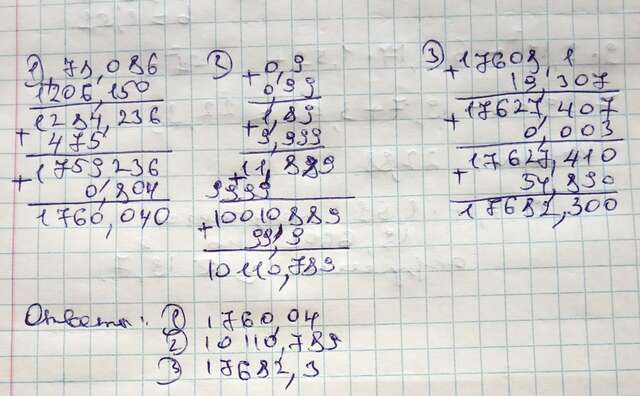 1) 78,086
1206,150
1284,236
+ 475
+ 1759,236
0,804
1760,040
2) + 0,9
0,99
+ 1,89
9,999
+ 11,889
9999
+ 10010,889
99,9
10110,789
3) + 17608,1
19,307
+ 17627,407
0,003
+ 17627,410
54,890
17682,300
Ответы: 1) 1760,04
2) 10110,789
3) 17682,3